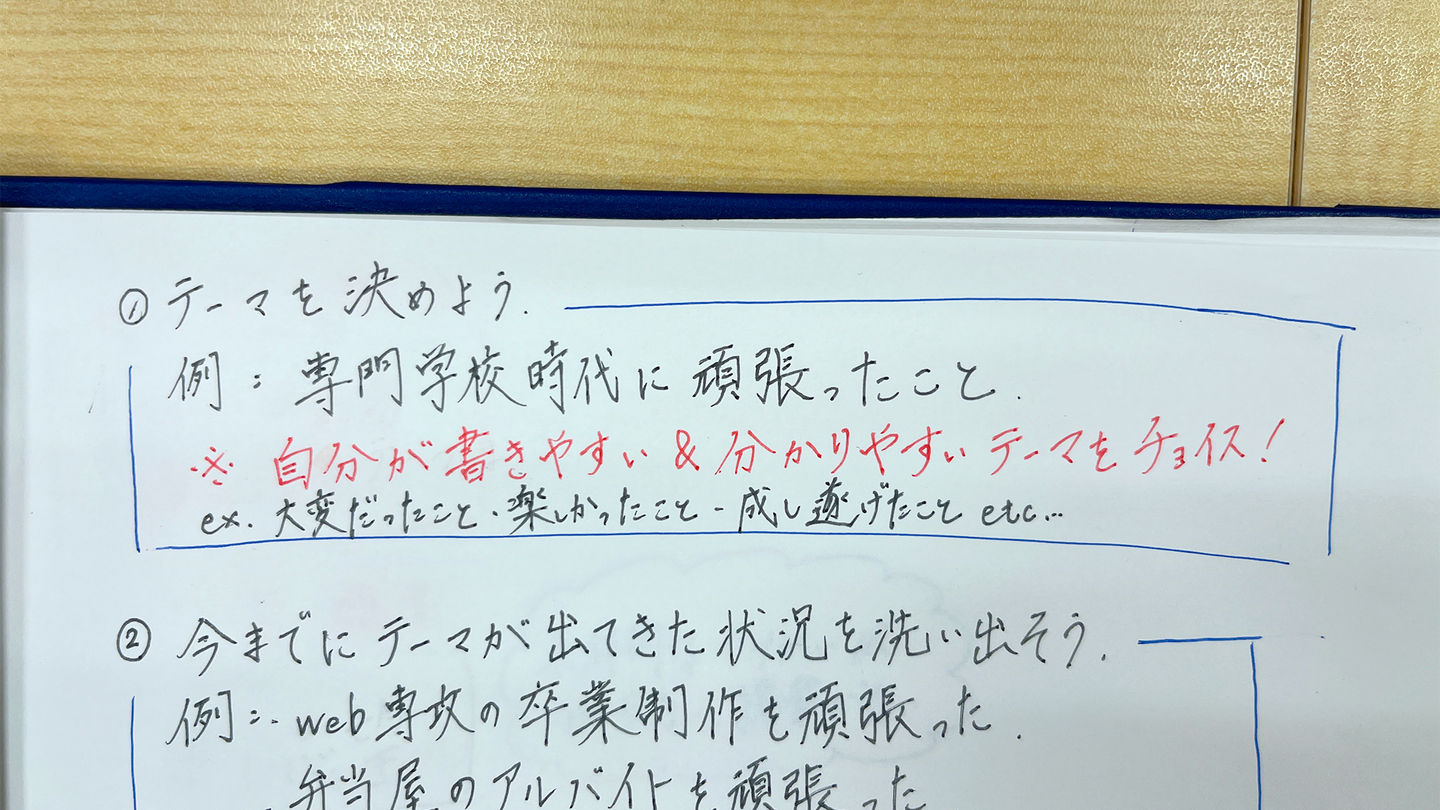 ① テーマを決めよう.
例：専門学校時代に頑張ったこと.
※ 自分が書きやすい & 分かりやすいテーマをチョイス！
ex. 大変だったこと・楽しかったこと・成し遂げたこと etc...
② 今までにテーマが出てきた状況を洗い出そう.
例：・web専攻の卒業制作を頑張った.
・弁当屋のアルバイトを頑張った